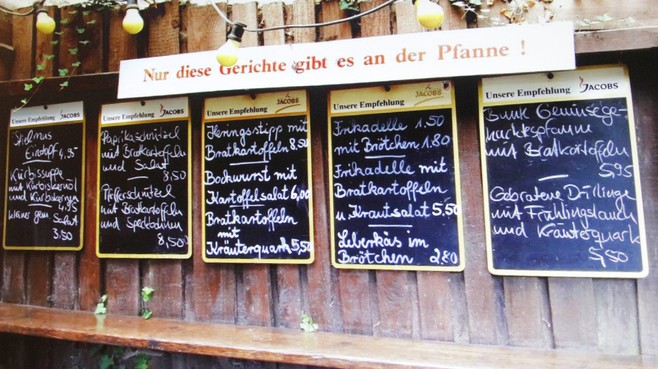 Nur diese Gerichte gibt es an der Pfanne !
Unsere Empfehlung JACOBS
Stielmus
Eintopf 4,95
Kürbissuppe
mit Kürbiskernöl
und Kürbiskernen
4,95
kleiner gem. Salat
3.50
Unsere Empfehlung JACOBS
Paprikaschnitzel
mit Bratkartoffeln
und Salat
8,50
Pfefferschnitzel
mit Bratkartoffeln
und Speckbohnen
8,50
Unsere Empfehlung JACOBS
Heringsstipp mit
Bratkartoffeln 8,50
Bockwurst mit
Kartoffelsalat 6,00
Bratkartoffeln
mit
Kräuterquark 5,50
Unsere Empfehlung JACOBS
Frikadelle 1.50
mit Brötchen 1.80
Frikadelle mit
Bratkartoffeln
u Krautsalat 5,50
Leberkäs im
Brötchen 2.80
Unsere Empfehlung JACOBS
Bunte Gemüsege-
mit Bratkartoffeln
5,95
Gebratene
mit Frühlingslauch
und Kräuterquark
5,50